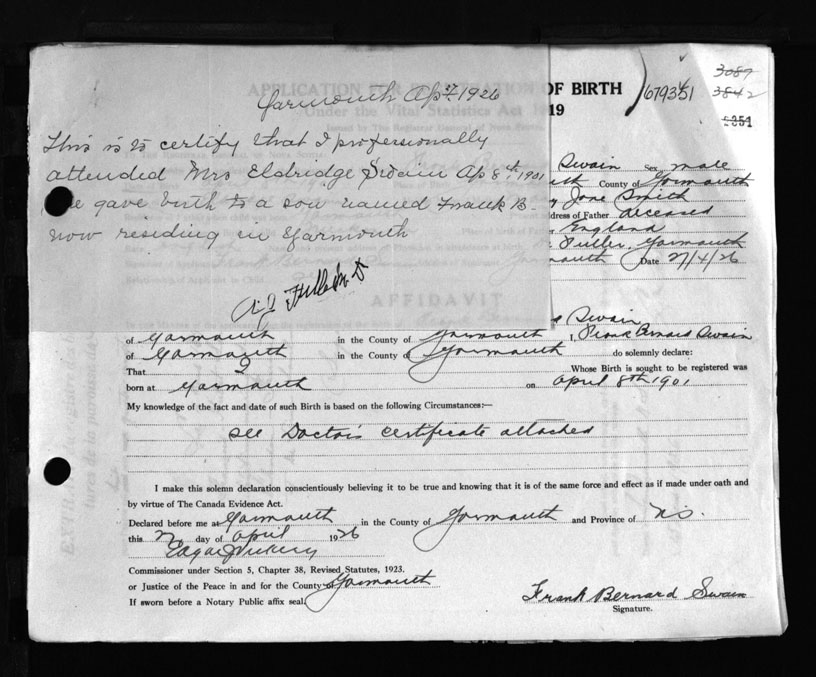 Yarmouth Ap 27 1926
This is to certify that I professionally
attended Mrs Eldridge Swain Ap 8th, 1901
She gave birth to a son named Frank B.
now residing in Yarmouth
A.J. Fuller M D
OF BIRTH
19
679351
3087
3842
Swain Sex male
County of Yarmouth
Jane Smith
Address of Father deceased
England
Fuller, Yarmouth
Date 27/4/26
AFFIDAVIT
Swain
of Yarmouth in the County of Yarmouth I, Frank Bernard Swain
of Yarmouth in the County of Yarmouth do solemnly declare:
That I Whose Birth is sought to be registered was
born at Yarmouth on April 8th 1901
My knowledge of the fact and date of such Birth is based on the following Circumstances:—
See Doctor's certificate attached
I make this solemn declaration conscientiously believing it to be true and knowing that it is of the same force and effect as if made under oath and
by virtue of The Canada Evidence Act.
Declared before me at Yarmouth in the County of Yarmouth and Province of N.S.
this 27 day of April 1926
Commissioner under Section 5, Chapter 38, Revised Statutes, 1923.
or Justice of the Peace in and for the County of Yarmouth
If sworn before a Notary Public affix seal.
Frank Bernard Swain
Signature.